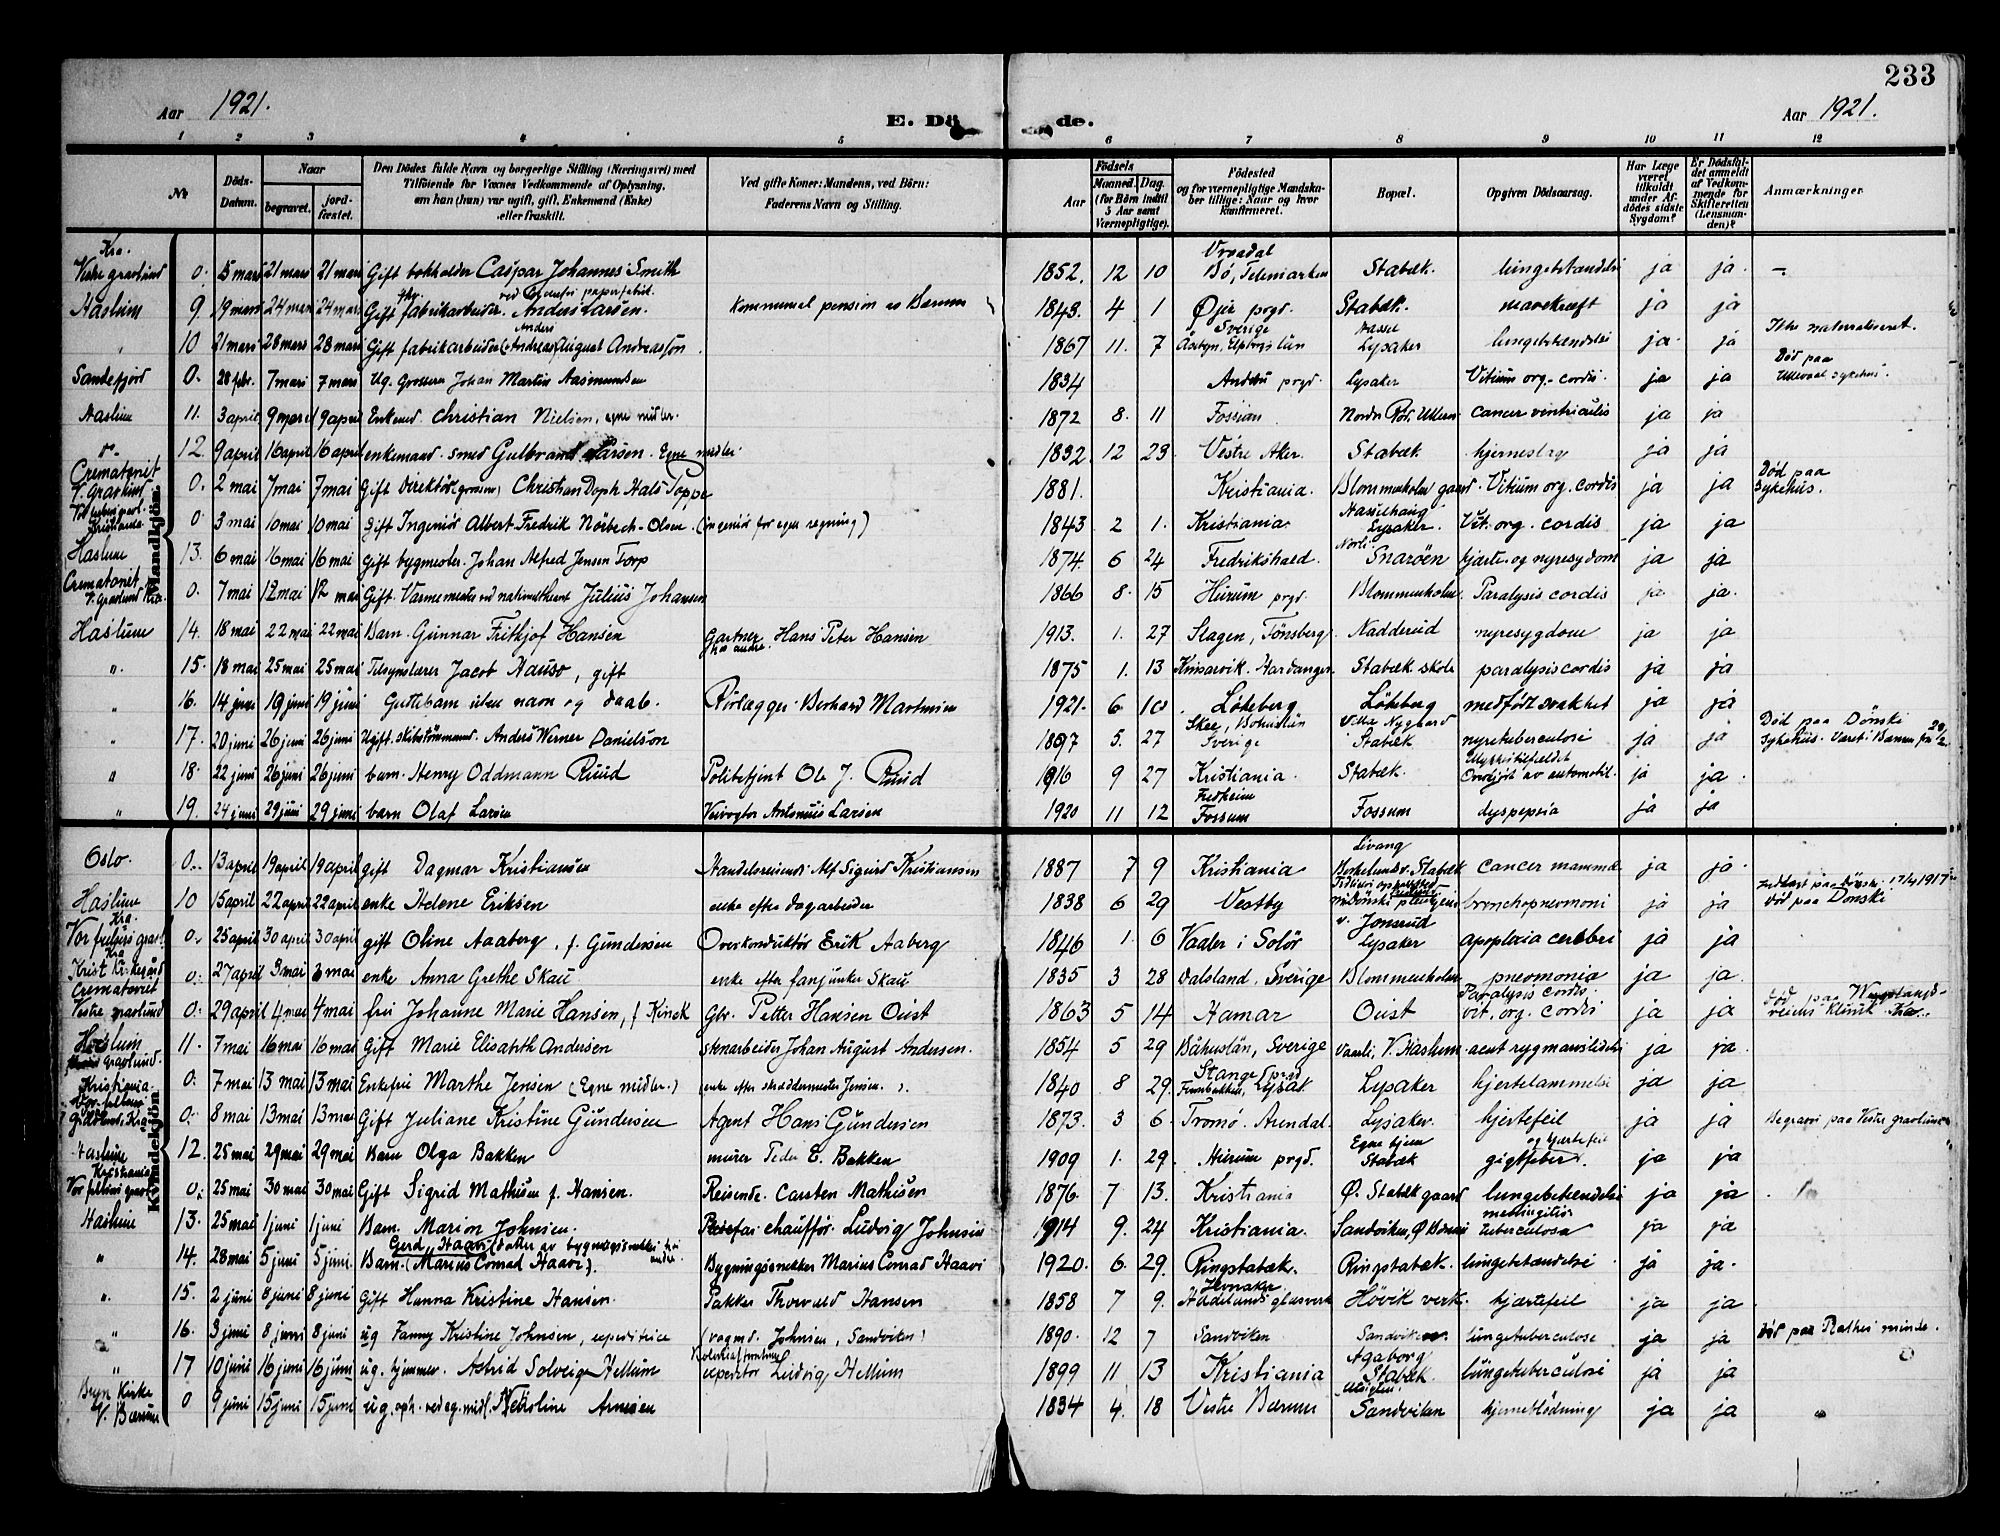 233
Aar 1921. E. Dö de. Aar 1921.
1 2 3 4 5 6 7 8 9 10 11 12
No Döds-Datum. Naar begravet. jord-fæstet. Den Dödes fulde Navn og borgerlige Stilling (Næringsvei) med Tilföiende for Voxnes Vedkommende af Oplysning, om han (hun) var ugift, gift, Enkemand (Enke) eller fraskilt. Ved gifte Koner: Mandens, ved Börn: Faderens Navn og Stilling. Födsels Aar Maaned. Dag. (for Börn indtil 5 Aar samt Værnepligtige). Födested og for værnepligtige Mandska-ber tillige: Naar og hvor konfirmeret. Bopæl. Opgiven Dödsaarsag. Har Læge været tilkaldt under Af-dödes sidste Sygdom? Er Dödsfal-det anmeldt af Vedkom-mende for Skifteretten (Lensman-den)? Anmærkninger
Mandkjön.
Kra. Vestre gravlund 0. 5 mars 21 mars 21 mars Gift bokholder Caspar Johannes Smith 1852. 12 10 Vraadal Bö, Telemarken Stabæk. lungebetændelse ja ja. —
Haslum 9 19 mars 24 mars 24 mars Gift fabrikarbeider. ved Granfos papirfabrik. Anders Larsen. Kommunal pension av Bærum 1843. 4 1 Øjer prgd. Stabæk. mavekræft ja ja
" 10 21 mars 28 mars 28 mars Gift fabrikarbeider Anders (Andreas) August Andreasson 1867 11. 7 Sverige Lysaker lungebetændelse ja. ja Ikke naturaliseret.
Sandefjord 0. 28 febr. 7 mars 7 mars Ug. Grosserer Johan Martin Aasmundsen 1834 prgd. Lysaker Vitium org. cordis. ja ja Död paa Ullevaal sykehus.
Haslum 11. 3 april 9 april Enkemd. Christian Nielsen, egne midler. 1872 8. 11 Fossum Nordr. Ullern cancer ventriculis ja ja
12. 9 april 16 april 16 april enkemand. smed Gulbrand Larsen. Egne midler. 1832 12 23 Vestre Aker. Stabæk hjerneslag ja ja
Crematoriet V. Gravlund 0. 2 mai 7 mai 7 mai Gift Direktör (grosserer) Christian Doph. Hals Toppe 1881. Kristiania. Blommenholm gaard. Vitium org. cordis ja ja Död paa Sykehus.
0 3 mai 10 mai 10 mai Gift Ingeniör Albert Fredrik Nörbech-Olsen (ingeniör for egen regning) 1843 2 1. Kristiania Hasselhaug Lysaker. Vit. org. cordis ja ja
Haslum 13. 6 mai 16 mai 16 mai Gift bygmester. Johan Alfred Jensen Torp 1874. 6 24 Fredrikshald. Norli. Snaröen hjerte- og nyresygdom ja ja
Crematoriet, V. Gravlund Kra. 0. 7 mai 12 mai 12 mai Gift. Varmemester ved nationaltheatret Julius Johansen 1866 8. 15 Hurum prgd. Blommenholm Paralysis cordis ja ja.
Haslum 14. 18 mai 22 mai 22 mai Barn. Gunnar Frithjof Hansen Gartner hos andre. Hans Peter Hansen 1913. 1. 27 Slagen, Tönsberg Nadderud nyresygdom ja ja
". 15. 18 mai 25 mai 25 mai Tilsynslærer Jacob Hauso, gift 1875 1. 13 Kinsarvik. Hardanger Stabæk skole paralysis cordis ja ja
" 16. 14 juni 19 juni 19 juni Guttebarn uten navn og daab. Rörlægger. Berhard Martinsen 1921. 6 10. Lökeberg Lökeberg medfödt svakhet ja ja
" 17. 20 juni 26 juni 26 juni Ugift. skibstömmermd. Anders Werner Danielson 1897 5. 27 Skee, Bohuslän Sverige Villa Nygaard Stabæk nyretuberculose ja ja Död paa Dönski Sykehus. Været i Bærum fra 20/2
" 18. 22 juni 26 juni 26 juni barn. Henry Oddmann Ruud Politibetjent Ole J. Ruud 1916 9 27 Kristiania. Stabæk. Ulykkestilfældet Overkjört av automobil. ja ja.
" 19. 24 juni 29 juni 29 juni barn Olaf Larsen Veivogter Antonius Larsen 1920 11 12 Fredheim Fossum Fossum dyspepsia ja ja
Kvindekjön
Oslo. 0. 13 april 19 april 19 april gift Dagmar Kristiansen Handelsreisende Alf Sigurd Kristiansen 1887 7 9 Kristiania Livang Stabæk cancer mammæ ja ja.
Haslum 10 15 april 22 april 22 april enke Helene Eriksen enke efter dagarbeider 1838 6 29 Vestby Dönski pleiehjem bronchopneumoni ja ja 17/4 1917 död paa Dönski
Kra. Vor frelsers gravl. 0. 25 april 30 april 30 april gift Oline Aaberg, f. Gundersen Overkonduktör Erik Aaberg 1846 1. 6 Vaaler i Solör v. Jonsrud Lysaker apoplexia cerebri ja ja
Kra Krist Kirkegård 0. 27 april 3 mai 3 mai enke Anna Grethe Skau enke efter fanjunker Skau 1835 3 28 Dalsland, Sverige Blommenholm pneomonia ja ja.
Crematoriet Vestre gravlund 0. 29 april 4 mai 4 mai fru Johanne Marie Hansen, f Kinck Gbr. Petter Hansen Oust 1863 5 14 Hamar Oust Paralysis cordis. vit. org. cordis ja ja död paa klinik Kra.
Haslum 11. 7 mai 16 mai 16 mai Gift Marie Elisabeth Andersen stenarbeider Johan August Andersen. 1854 5 29 Båhuslän, Sverige Vaarli, V. Haslum. acut rygmarvslidelse ja ja.
gravlund. Kristiania. 0. 7 mai 13 mai 13 mai Enkefru Marthe Jensen (Egne midler.) (enke efter skreddermester Jensen.) 1840 8 29. Stange prgd Lysaker hjertelammelse ja ja
Gravlund, Kra 0. 8 mai 13 mai 13 mai Gift Juliane Kristine Gundersen Agent Hans Gundersen 1873. 3 6 Tromö, Arendal. Lysaker. hjertefeil ja ja Begravet paa Vestre gravlund
Haslum 12. 25 mai 29 mai 29 mai Barn Olga Bakken murer Peder E. Bakken 1909 1. 29. Hurum prgd. Egne hjem Stabæk og hjertefeil gigtfeber. ja ja
Kristiania Vor frelsers gravl. 0. 25 mai 30 mai 30 mai Gift Sigrid Mathisen f. Hansen. Reisende. Carsten Mathisen 1876 7 13. Kristiania Ø. Stabæk gaard lungebetændelse ja ja
Haslum 13. 25 mai 1 juni 1 juni Barn. Marion Johnsen. chauffør. Ludvig Johnsen 1914 9. 24 Kristiania. Sandviken, Ø. Bærum meningitis tuberculosa ja ja
" 14. 28 mai 5 juni 5 juni. Barn. Gerd Haavi datter av bygningssnekker (Marius Conrad Haavi). Bygningssnekker Marius Conrad Haavi 1920. 6. 29. Ringstabæk. Ringstabæk. lungebetændelse ja ja.
". 15. 2 juni 8 juni 8 juni Gift Hanna Kristine Hansen. Pakker Thorvald Hansen 1858 7 9. Jevnaker Hadelands glasverk Hövik verk. hjærtefeil ja ja
" 16. 3 juni 8 juni 8 juni ug Fanny Kristine Johnsen, expeditrice (vognmd. Johnsen, Sandviken) 1890. 12 7 Sandviken Sandviken. lungetuberculose ja ja Död paa Rathes minde.
" 17 10 juni 16 juni 16 juni ug. hjemmev. Astrid Solveig Hellum Ludvig Hellum 1899 11 13 Kristiania Stabæk lungetuberculose ja ja
Bryn Kirke V. Bærum 0 9 juni 15 juni 15 juni ug. oph. ved eg. midl. Nekoline Arnesen 1834 4. 18 Vestre Bærum Sandviken hjerneblödning ja ja